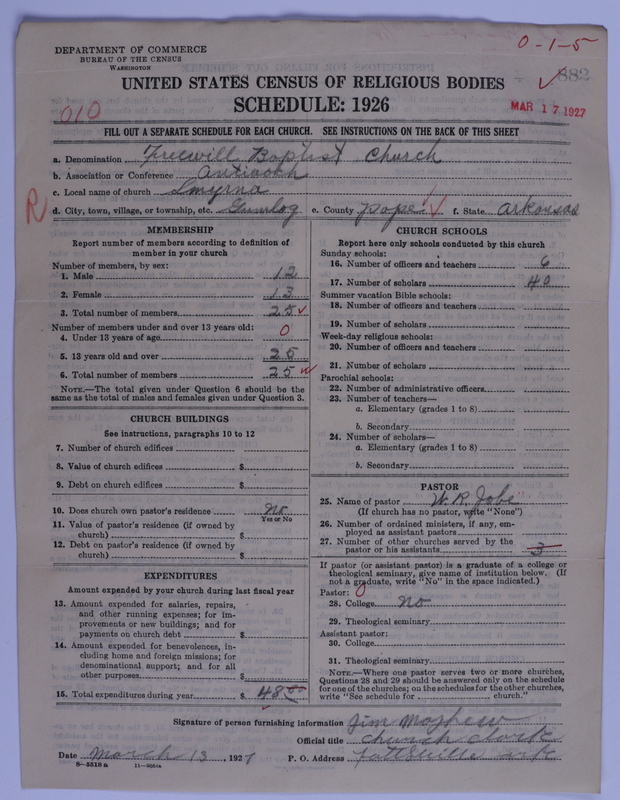 DEPARTMENT OF COMMERCE
BUREAU OF THE CENSUS
WASHINGTON
0-1-5
882
UNITED STATES CENSUS OF RELIGIOUS BODIES
SCHEDULE: 1926
MAR 17 1927
010
FILL OUT A SEPARATE SCHEDULE FOR EACH CHURCH. SEE INSTRUCTIONS ON THE BACK OF THIS SHEET
a. Denomination Freewill Baptist Church
b. Association or Conference Antiooch
c. Local name of church Smyrna
R
d. City, town, village, or township, etc. Gumlog e. County Pope f. State Arkansas
MEMBERSHIP
Report number of members according to definition of
member in your church
Number of members, by sex:
1. Male 12
2. Female 13
3. Total number of members 25
Number of members under and over 13 years old:
4. Under 13 years of age 0
5. 13 years old and over 25
6. Total number of members 25
NOTE.—The total given under Question 6 should be
same as the total of males and females given under Question 3.
CHURCH BUILDINGS
See instructions, paragraphs 10 to 12
7. Number of church edifices
8. Value of church edifices $
9. Debt on church edifices $
10. Does church own pastor's residence no
Yes or No
11. Value of pastor's residence (if owned by
church) $
12. Debt on pastor's residence (if owned by
church) $
EXPENDITURES
Amount expended by your church during last fiscal year
13. Amount expended for salaries, repairs,
and other running expenses; for im-
provements or new buildings; and for
payments on church debt $
14. Amount expended for benevolences, in-
cluding home and foreign missions; for
denominational support; and for all
other purposes $
15. Total expenditures during year $ 48 00
CHURCH SCHOOLS
Report here only schools conducted by this church
Sunday schools:
16. Number of officers and teachers 6
17. Number of scholars 40
Summer vacation Bible schools:
18. Number of officers and teachers
19. Number of scholars
Week-day religious schools:
20. Number of officers and teachers
21. Number of scholars
Parochial schools:
22. Number of administrative officers
23. Number of teachers—
a. Elementary (grades 1 to 8)
b. Secondary
24. Number of scholars—
a. Elementary (grades 1 to 8)
b. Secondary
PASTOR
25. Name of pastor W. R. Jobe
(If church has no pastor, write "None")
26. Number of ordained ministers, if any, em-
ployed as assistant pastors
27. Number of other churches served by the
pastor or his assistants 3
If pastor (or assistant pastor) is a graduate of a college or
theological seminary, give name of institution below. (If
not a graduate, write "No" in the space indicated.)
Pastor: 0
28. College no
29. Theological seminary
Assistant pastor:
30. College
31. Theological seminary
NOTE.—Where one pastor serves two or more churches,
Questions 28 and 29 should be answered only on the schedule
for one of the churches; on the schedules for the other churches,
write "See schedule for church."
Signature of person furnishing information Jim Mathew
Official title Church Clerk
Date March 13, 1927 P. O. Address
8-5518 a